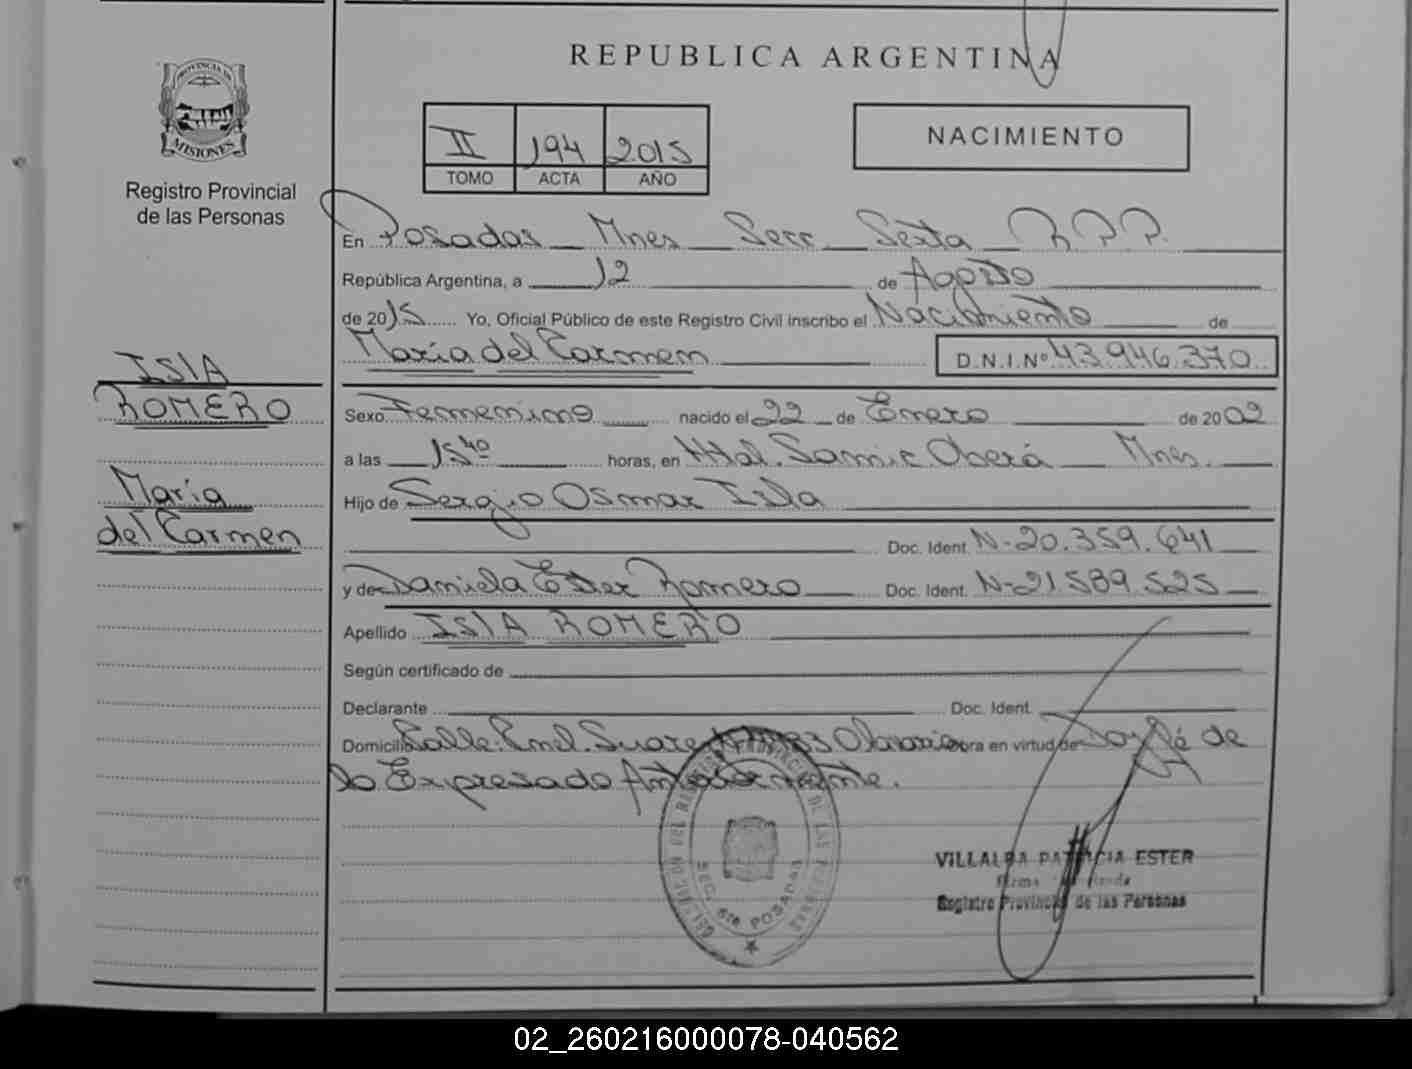 REPUBLICA ARGENTINA
PROVINCIA DE
MISIONES
Registro Provincial
de las Personas
II 194 2015
TOMO ACTA AÑO
NACIMIENTO
En Posadas Mnes Secc Sexta R.P.P.
República Argentina, a 12 de Agosto
de 2015 Yo, Oficial Público de este Registro Civil inscribo el Nacimiento de
María del Carmen D.N.I.Nº 43.946.370
ISLA
ROMERO
María
del Carmen
Sexo Femenino nacido el 22 de Enero de 2002
a las 15 40 horas, en Htal. Samic Oberá Mnes.
Hijo de Sergio Osmar Isla
Doc. Ident. N-20.359.641
y de Daniela Ester Romero Doc. Ident. N-21.589.525
Apellido ISLA ROMERO
Según certificado de
Declarante Doc. Ident.
Domicilio Calle: Cnel. Suarez Olavarria Obra en virtud de Doy fé de
lo Expresado Anteriormente.
SEC. 6ta POSADAS
VILLALBA PATRICIA ESTER
Firma
Registro Provincial de las Personas
02_260216000078-040562